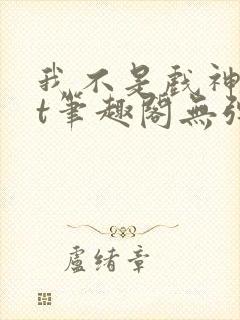 我不是戲神
t筆趣閣無彈
盧緒章